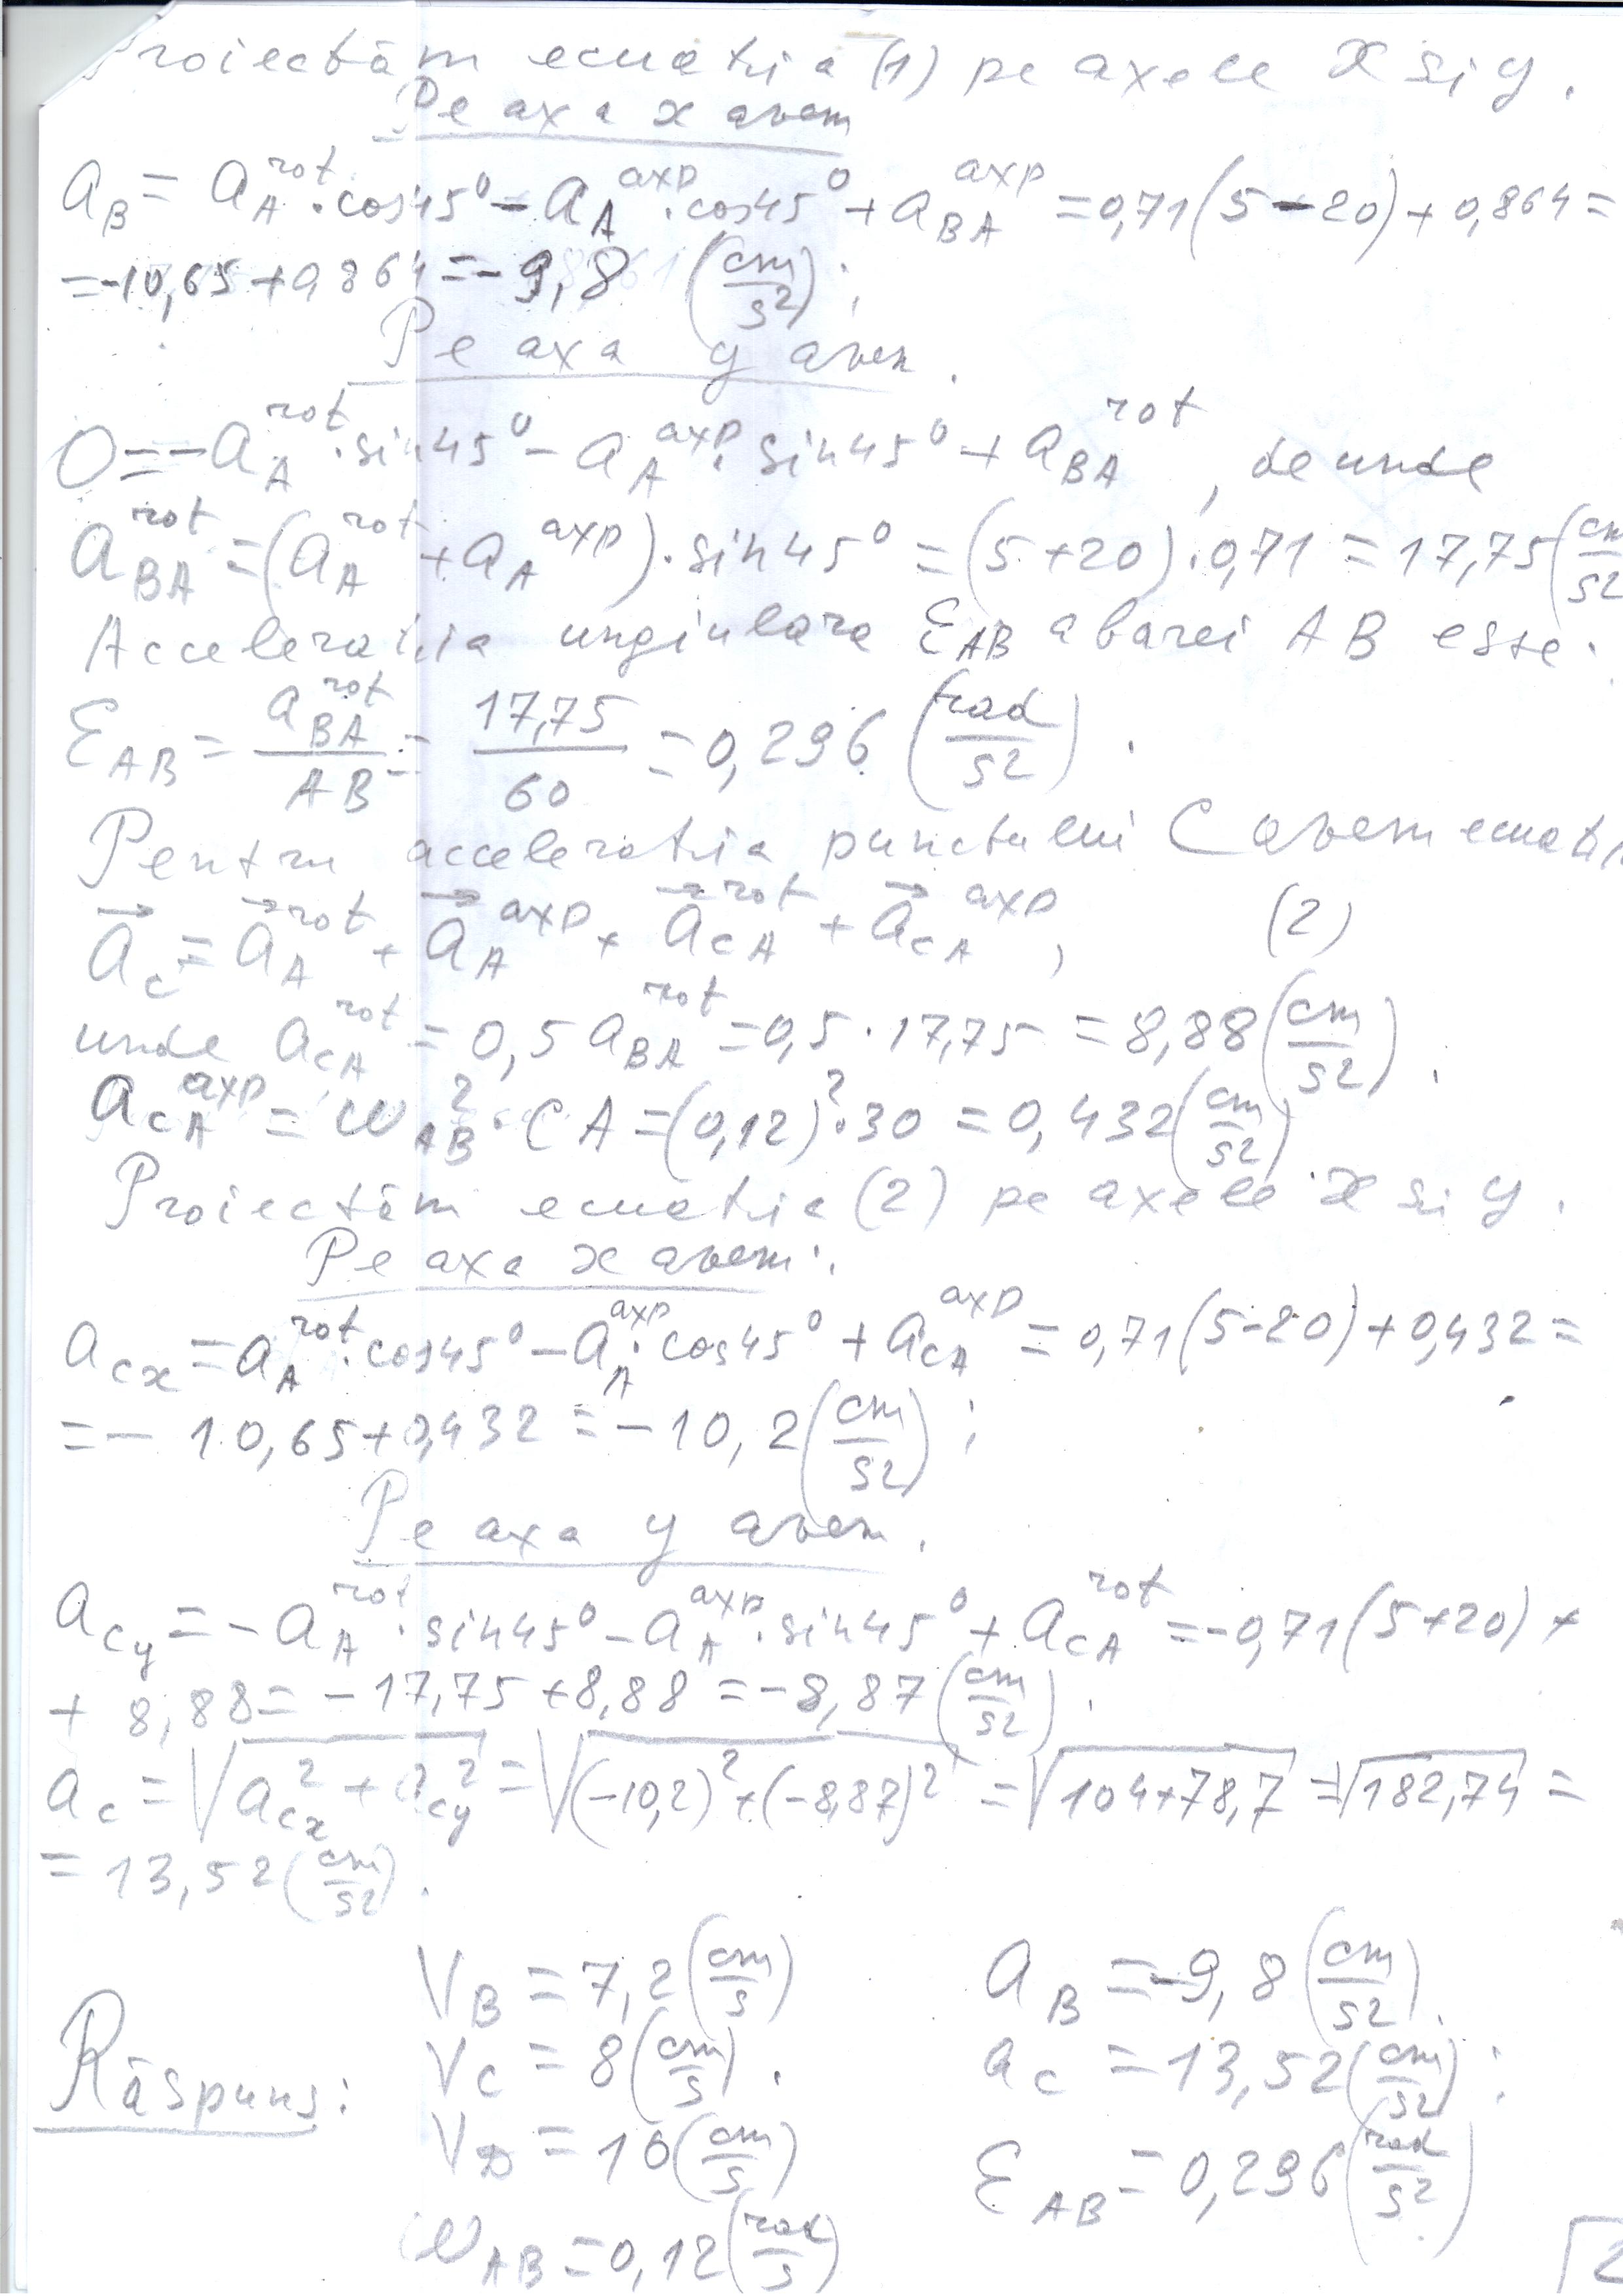 Proiectăm ecuatia (1) pe axele x si y.
Pe axa x avem
a_B = a_A^rot · cos45° - a_A^axp · cos45° + a_BA^axp = 0,71(5-20)+0,864 =
= -10,65+0,864 = -9,8 (cm/s²);
Pe axa y avem.
0 = -a_A^rot · sin45° - a_A^axp · sin45° + a_BA^rot, de unde
a_BA^rot = (a_A^rot + a_A^axp) · sin45° = (5+20) · 0,71 = 17,75 (cm/s²
Acceleratia unghiulara ε_AB a barei AB este.
ε_AB = a_BA^rot / AB = 17,75 / 60 = 0,296 (rad/s²).
Pentru acceleratia punctului C avem ecuati
a⃗_C = a⃗_A^rot + a⃗_A^axp + a⃗_CA^rot + a⃗_CA^axp, (2)
unde a_CA^rot = 0,5 a_BA^rot = 0,5 · 17,75 = 8,88 (cm/s²).
a_CA^axp = ω_AB² · CA = (0,12)² · 30 = 0,432 (cm/s²)
Proiectăm ecuatia (2) pe axele x si y.
Pe axa x avem:
a_Cx = a_A^rot · cos45° - a_A^axp · cos45° + a_CA^axp = 0,71(5-20)+0,432 =
= - 10,65+0,432 = -10,2 (cm/s²);
Pe axa y avem.
a_Cy = -a_A^rot · sin45° - a_A^axp · sin45° + a_CA^rot = -0,71(5+20) +
+ 8,88 = -17,75+8,88 = -8,87 (cm/s²).
a_C = √(a_Cx² + a_Cy²) = √((-10,2)²+(-8,87)²) = √(104+78,7) = √182,74 =
= 13,52 (cm/s²).
V_B = 7,2 (cm/s) a_B = -9,8 (cm/s²).
Răspuns: V_C = 8 (cm/s). a_C = 13,52 (cm/s²);
V_D = 10 (cm/s) ε_AB = 0,296 (rad/s²)
ω_AB = 0,12 (rad/s)